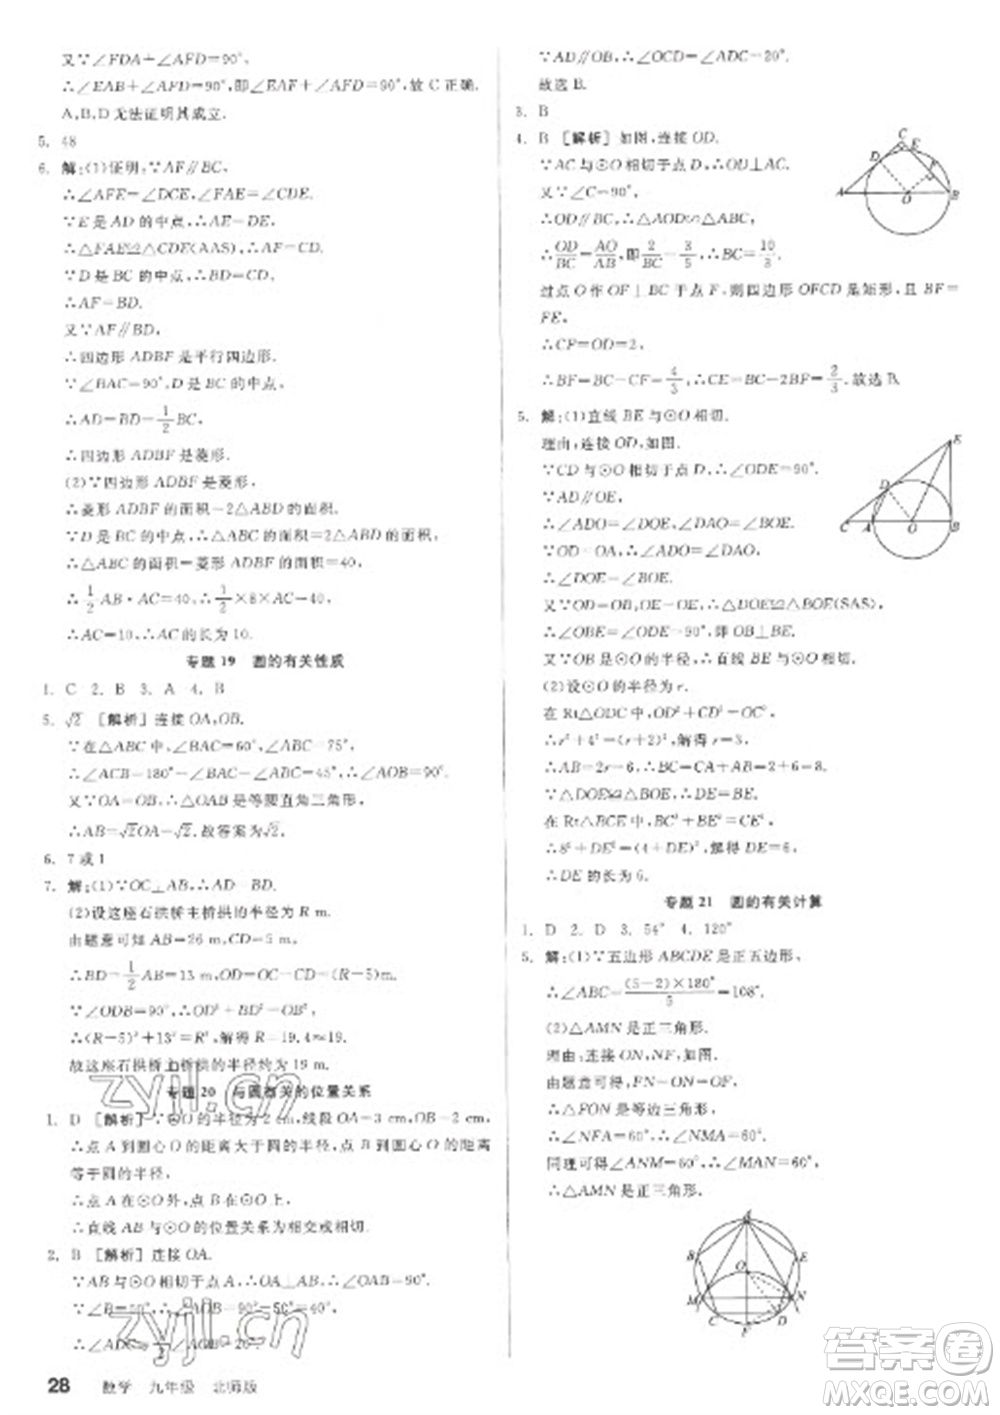 又∵∠FDA+∠AFD=90°,
∴∠EAB+∠AFD=90°,即∠EAF=90°,故 C 正确.
A,B,D 无法证明其成立.
5. 48
6. 解:(1)证明:∵AF∥BC,
∴∠AFE=∠DCE,∠FAE=∠CDE.
∵E 是 AD 的中点,∴AE=DE,
∴△FAE≌△CDE(AAS),∴AF=CD.
∵D 是 BC 的中点,∴BD=CD,
∴AF=BD.
又∵AF∥BD,
∴四边形 ADBF 是平行四边形.
∵∠BAC=90°,D 是 BC 的中点,
∴AD=BD=1/2BC,
∴四边形 ADBF 是菱形.
(2)∵四边形 ADBF 是菱形,
∴菱形 ADBF 的面积=2△ABD 的面积.
∵D 是 BC 的中点,∴△ABC 的面积=2△ABD 的面积,
∴△ABC 的面积=菱形 ADBF 的面积=40,
∴1/2AB·AC=40,∴1/2×8×AC=40,
∴AC=10,∴AC 的长为 10.
专题 19 圆的有关性质
1. C 2. B 3. A 4. B
5. √2 [解析]连接 OA,OB.
∵在△ABC 中,∠BAC=60°,∠ABC=75°,
∴∠ACB=180°-∠BAC-∠ABC=45°,∴∠AOB=90°.
又∵OA=OB,∴△OAB 是等腰直角三角形,
∴AB=√2OA=√2.故答案为√2.
6. 7 或 1
7. 解:(1)∵OC⊥AB,∴AD=BD.
(2)设这座石拱桥主桥拱的半径为 R m.
由题意可知 AB=26 m,CD=5 m,
∴BD=1/2AB=13 m,OD=OC-CD=(R-5)m.
∵∠ODB=90°,∴OD²+BD²=OB²,
∴(R-5)²+13²=R²,解得 R=19.4≈19.
故这座石拱桥主桥拱的半径约为 19 m.
专题 20 与圆有关的位置关系
1. D [解析]∵⊙O 的半径为 2 cm,线段 OA=3 cm,OB=2 cm,
∴点 A 到圆心 O 的距离大于圆的半径,点 B 到圆心 O 的距离
等于圆的半径,
∴点 A 在⊙O 外,点 B 在⊙O 上,
∴直线 AB 与⊙O 的位置关系为相交或相切.
2. B [解析]连接 OA.
∵AB 与⊙O 相切于点 A,∴OA⊥AB,∴∠OAB=90°.
∵∠B=50°,∴∠AOB=90°-50°=40°,
∴∠ADC=1/2∠AOB=20°.
28 数学 九年级 北师版
∵AD∥OB,∴∠OCD=∠ADC=20°.
故选 B.
3. B
4. B [解析]如图,连接 OD.
∵AC 与⊙O 相切于点 D,∴OD⊥AC.
又∵∠C=90°,
∴OD∥BC,∴△AOD∽△ABC,
∴OD/BC=AO/AB,即 2/BC=3/5,∴BC=10/3.
过点 O 作 OF⊥BC 于点 F,则四边形 OFCD 是矩形,且 BF=
FE,
∴CF=OD=2,
∴BF=BC-CF=4/3,∴CE=BC-BE=2/3.故选 B.
5. 解:(1)直线 BE 与⊙O 相切.
理由:连接 OD,如图.
∵CD 与⊙O 相切于点 D,∴∠ODE=90°.
∵AD∥OE,
∴∠ADO=∠DOE,∠DAO=∠BOE.
∵OD=OA,∴∠ADO=∠DAO,
∴∠DOE=∠BOE.
又∵OD=OB,OE=OE,∴△DOE≌△BOE(SAS),
∴∠OBE=∠ODE=90°,∴OB⊥BE.
∵OB 是⊙O 的半径,∴直线 BE 与⊙O 相切.
(2)设⊙O 的半径为 r.
在 Rt△ODC 中,OD²+CD²=OC²,
∴r²+4²=(r+2)²,解得 r=3,
∴AB=2r=6,∴BC=CA+AB=2+6=8.
∵△DOE≌△BOE,∴DE=BE.
在 Rt△BCE 中,BC²+BE²=CE²,
∴8²+BE²=(4+DE)²,解得 DE=6,
∴DE 的长为 6.
专题 21 圆的有关计算
1. D 2. D 3. 54° 4. 120°
5. 解:(1)∵五边形 ABCDE 是正五边形,
∴∠ABC=(5-2)×180°/5=108°.
(2)△AMN 是正三角形.
理由:如图,连接 ON,NF,
由题意可得 FN=ON=OF,
∴△FON 是等边三角形,
∴∠NFA=60°,∴∠NMA=60°.
同理可得∠ANM=60°,∴∠MAN=60°,
∴△AMN 是正三角形.